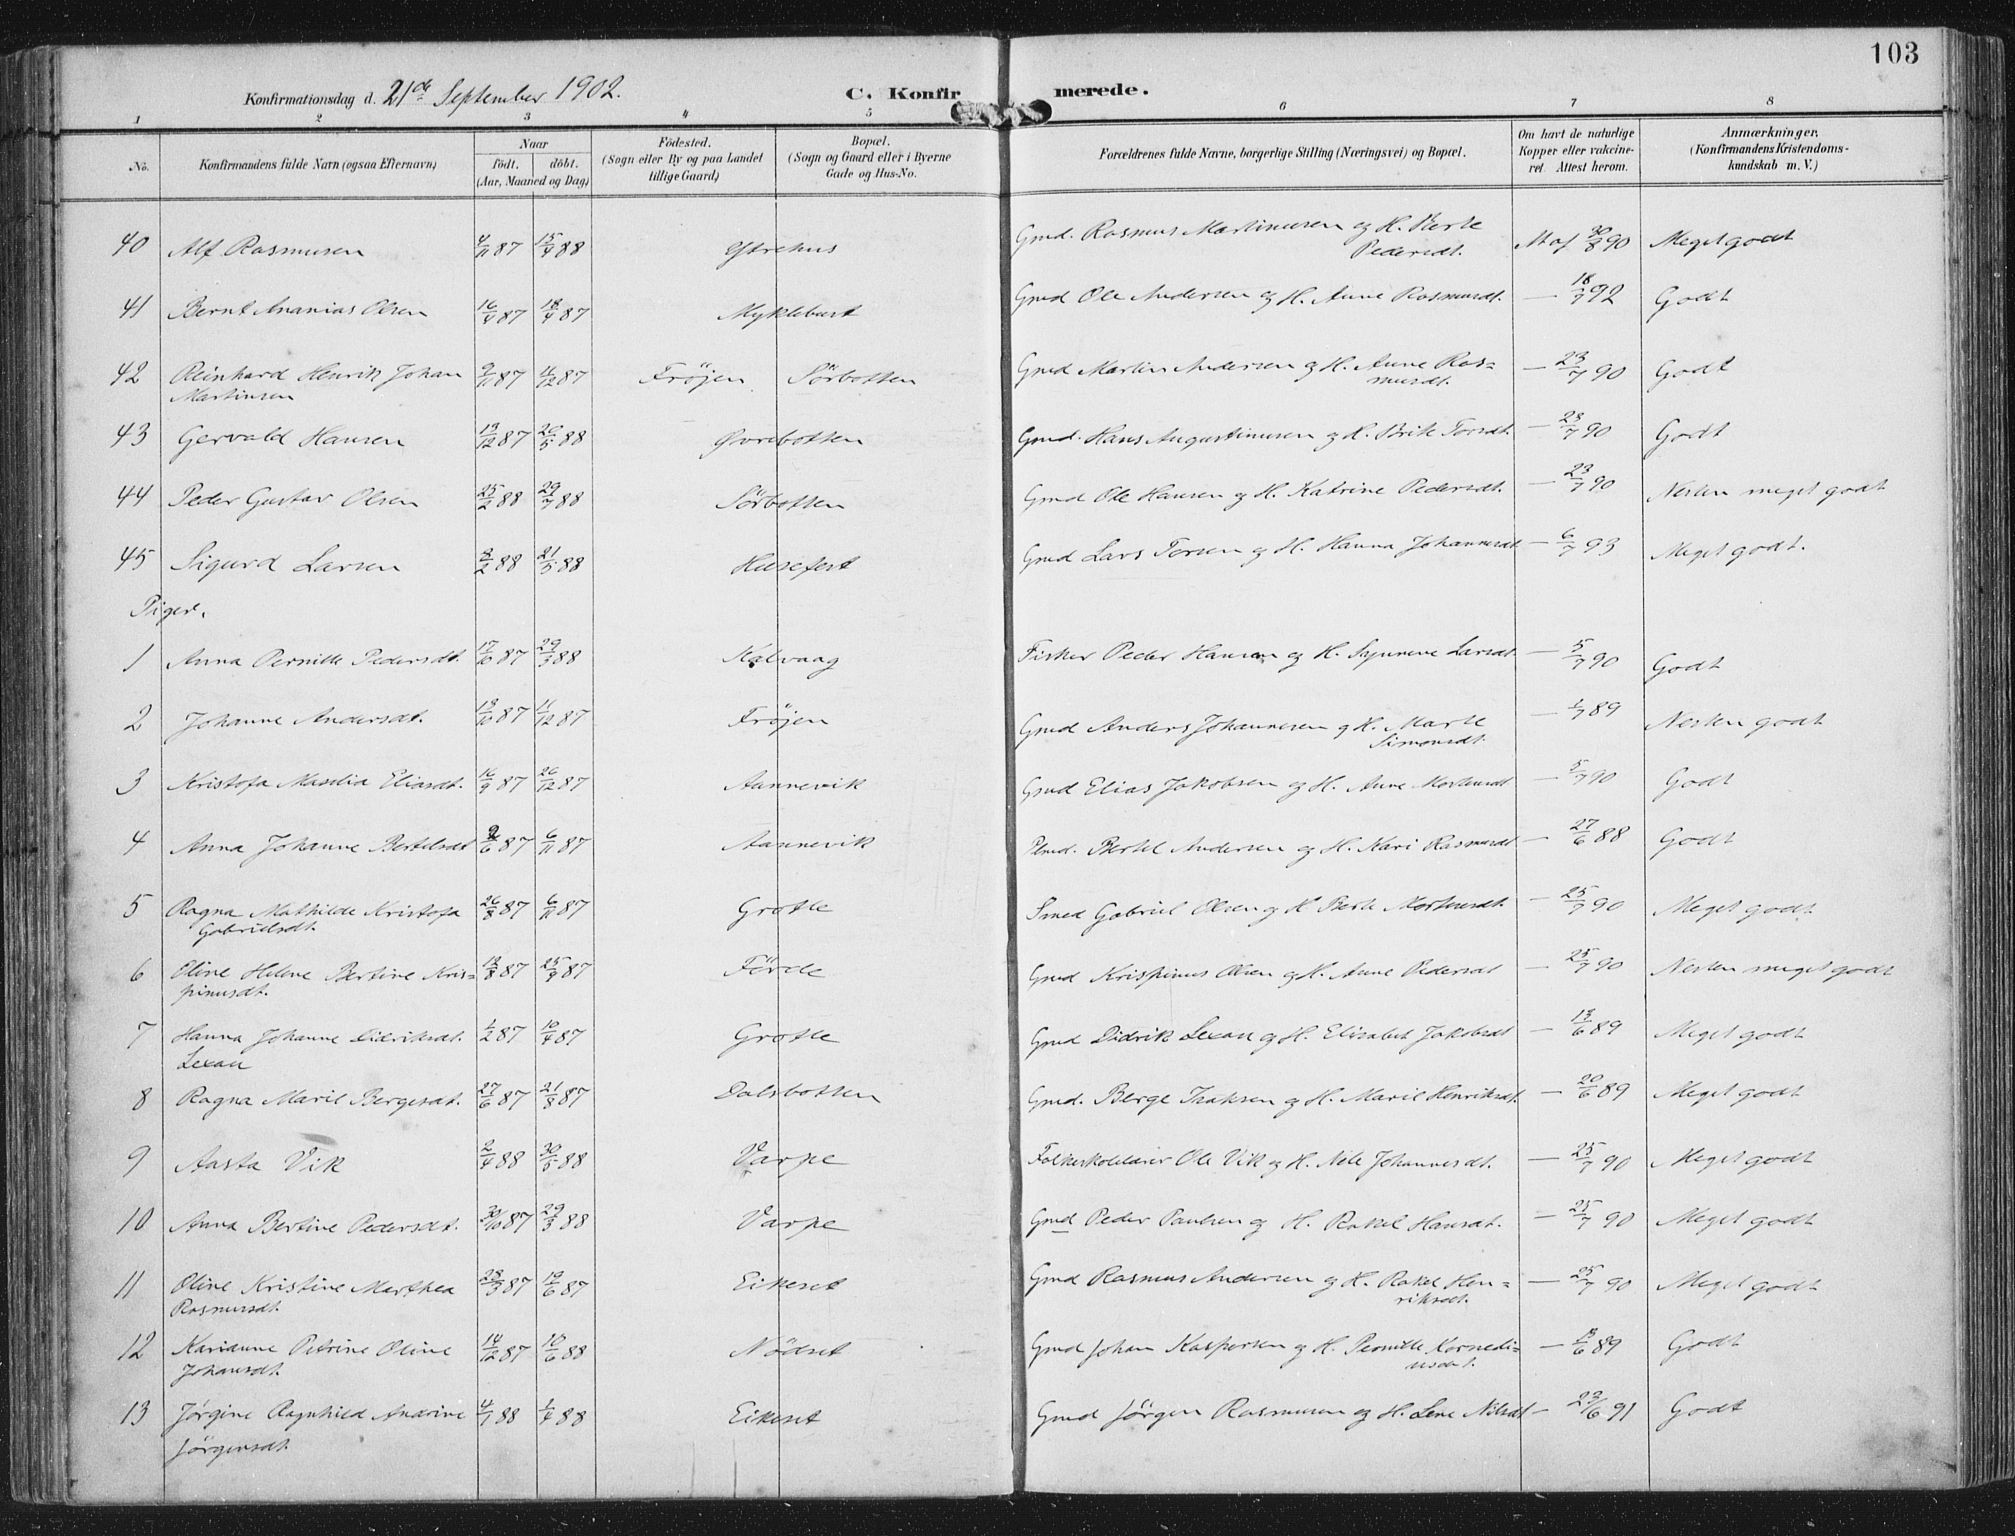 103
Konfirmationsdag d. 21de September 1902.
C. Konfirmerede.
1 2 3 4 5 6 7 8
No.
Konfirmandens fulde Navn (ogsaa Efternavn)
Naar
födt. döbt.
(Aar, Maaned og Dag)
Födested.
(Sogn eller By og paa Landet
tillige Gaard)
Bopæl.
(Sogn og Gaard eller i Byerne
Gade og Hus-No.
Forældrenes fulde Navne, borgerlige Stilling (Næringsvei) og Bopæl.
Om havt de naturlige
Kopper eller vakcine-
ret. Attest herom.
Anmærkninger.
(Konfirmandens Kristendoms-
kundskab m. V.)
40 Alf Rasmusen 4/11 87 15/4 88 Ytrehus Gmd. Rasmus Martinusen og H. Berte 30/8 90 Meget godt
Pedersdt.
41 Bernt Ananias Olsen 16/4 87 18/4 87 Myklebust Gmd Ole Andersen og H. Anne Rasmusdt. — 18/7 92 Godt
42 Reinhard Henrik Johan 9/11 87 11/12 87 Fröjen Sörbotten Gmd Martin Andersen og H. Anne Ras= — 23/7 90 Godt
Martinsen musdt.
43 Gervald Hansen 13/12 87 20/5 88 Øvrebotten Gmd. Hans Augustinusen og H. Brite Torsdt. — 23/7 90 Godt
44 Peder Gustav Olsen 25/2 88 29/7 88 Sörbotten Gmd Ole Hansen og H. Katrine Pedersdt. — 23/7 90 Nesten meget godt
45 Sigurd Larsen 3/2 88 21/5 88 Husefest Gmd Lars Torsen og H. Hanna Johannesdt — 6/7 93 Meget godt.
Piger.
1 Anna Pernille Pedersdt. 17/10 87 29/3 88 Kalvaag Fisker Peder Hansen og H. Synneve Larsdt — 5/7 90 Godt
2 Johanne Andersdt. 13/10 87 11/12 87 Fröjen Gmd Anders Johannesen og H. Marte — 1/7 89 Nesten godt
Simonsdt.
3 Kristofa Maselia Eliasdt. 16/9 87 26/12 87 Aannevik Gmd Elias Jakobsen og H. Anne Mortensdt — 5/7 90 Godt
4 Anna Johanne Bertelsdt 6/11 87 Aannevik Bertel Andersen og H. Kari Rasmusdt — 27/6 88 Godt
5 Ragna Mathilde Kristofa 26/8 87 6/11 87 Grotle Smed Gabriel Olsen og H Berte Mortensdt. — 25/7 90 Meget godt
Gabrielsdt.
6 Oline Helene Bertine Kris= 13/8 87 25/9 87 Förde Gmd Krispinus Olsen og H. Anne Pedersdt — 25/7 90 Nesten meget godt
pinusdt.
7 Hanna Johanne Didriksdt. 1/2 87 10/4 87 Grotle Gmd Didrik Lexau og H. Elisabet Jakobsdt — 13/6 89 Meget godt
Lexau
8 Ragna Marie Bergesdt. 27/6 87 21/8 87 Dalsbotten Gmd. Berge Isaksen og H. Marie Henriksdt. — 20/6 89 Meget godt
9 Aasta Vik 2/4 88 30/5 88 Varpe Folkeskolelærer Ole Vik og H. Nele Johannesdt. — 25/7 90 Meget godt
10 Anna Bertine Pedersdt. 30/10 87 29/3 88 Varpe Gmd Peder Paulsen og H. Rakel Hansdt. — 25/7 90 Meget godt
11 Oline Kristine Marthea 28/3 87 19/6 87 Eikeset Gmd Rasmus Andersen og H. Rakel Hen= — 25/7 90 Meget godt
Rasmusdt. riksdt.
12 Karianne Petrine Oline 14/12 87 10/6 88 Nödset Gmd Johan Kaspersen og H. Pernille Kornedi= — 13/6 89 Godt
Johansdt. usdt.
13 Jørgine Ragnhild Andrine 4/1 88 1/4 88 Eikeset Gmd Jørgen Rasmusen og H. Lene Nilsdt — 23/6 91 Godt
Jørgensdt